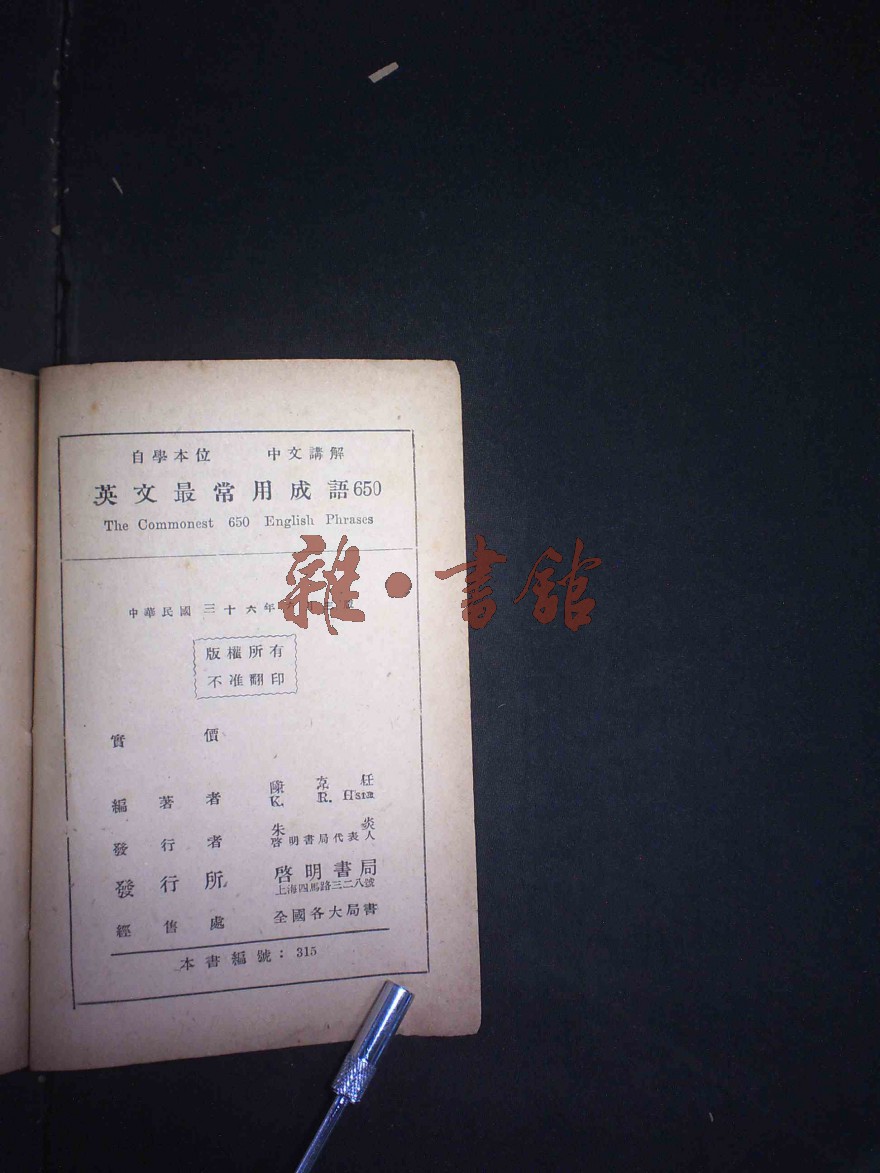 自學本位 中文講解
英文最常用成語650
The Commonest 650 English Phrases
雜·書館
中華民國三十六年
版權所有
不准翻印
實價
編著者 陳 任
K. R.
發行者 朱炎
啓明書局代表人
發行所 啓明書局
上海四馬路三二八號
經售處 全國各大局書
本書編號：315